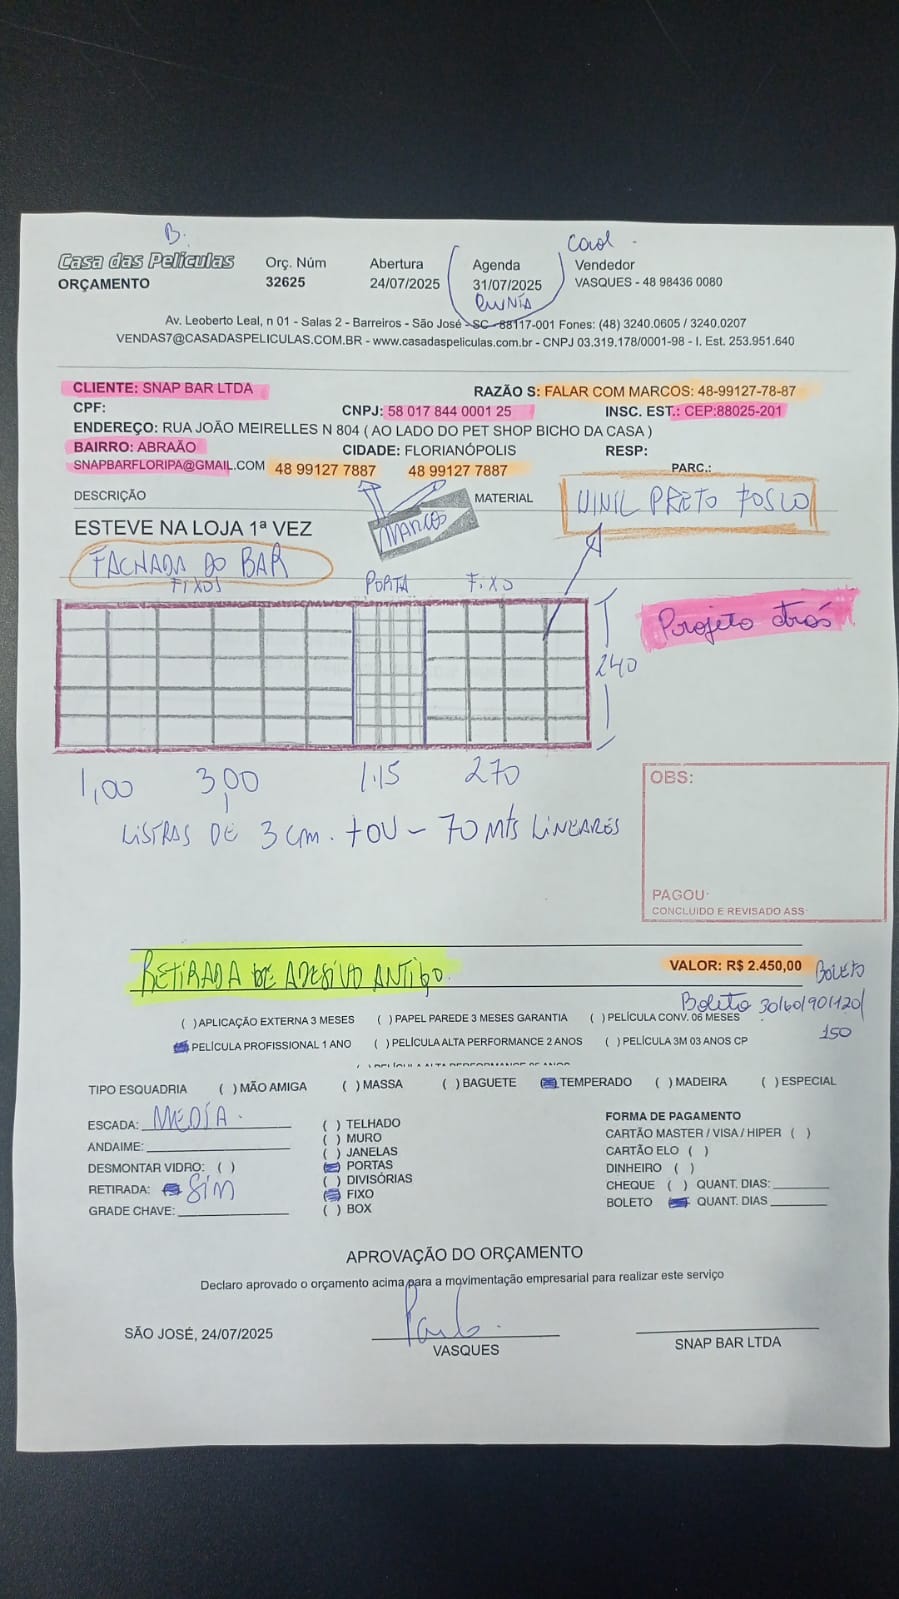 B.
Casa das Películas Orç. Núm Abertura Agenda Vendedor
ORÇAMENTO 32625 24/07/2025 31/07/2025 VASQUES - 48 98436 0080
Av. Leoberto Leal, n 01 - Salas 2 - Barreiros - São José - SC - 88117-001 Fones: (48) 3240.0605 / 3240.0207
VENDAS7@CASADASPELICULAS.COM.BR - www.casadaspeliculas.com.br - CNPJ 03.319.178/0001-98 - I. Est. 253.951.640
CLIENTE: SNAP BAR LTDA RAZÃO S: FALAR COM MARCOS: 48-99127-78-87
CPF: CNPJ: 58 017 844 0001 25 INSC. EST.: CEP:88025-201
ENDEREÇO: RUA JOÃO MEIRELLES N 804 ( AO LADO DO PET SHOP BICHO DA CASA )
BAIRRO: ABRAÃO CIDADE: FLORIANÓPOLIS RESP:
SNAPBARFLORIPA@GMAIL.COM 48 99127 7887 48 99127 7887 PARC.:
DESCRIÇÃO MATERIAL VINIL PRETO FOSCO
ESTEVE NA LOJA 1ª VEZ MARCOS
FACHADA DO BAR
FIXOS PORTA FIXO
Projeto atrás
240
1,00 300 1.15 270
LISTRAS DE 3 cm. + OU - 70 Mts LINEARES
OBS:
PAGOU:
CONCLUIDO E REVISADO ASS
RETIRADA DE ADESIVO ANTIGO. VALOR: R$ 2.450,00 BOLETO
Boleto 30/60/90/120/
150
( ) APLICAÇÃO EXTERNA 3 MESES ( ) PAPEL PAREDE 3 MESES GARANTIA ( ) PELÍCULA CONV. 06 MESES
PELÍCULA PROFISSIONAL 1 ANO ( ) PELÍCULA ALTA PERFORMANCE 2 ANOS ( ) PELÍCULA 3M 03 ANOS CP
TIPO ESQUADRIA ( ) MÃO AMIGA ( ) MASSA ( ) BAGUETE TEMPERADO ( ) MADEIRA ( ) ESPECIAL
ESCADA: MEDIA.
ANDAIME:
DESMONTAR VIDRO: ( )
RETIRADA: Sim
GRADE CHAVE:
( ) TELHADO
( ) MURO
( ) JANELAS
PORTAS
( ) DIVISÓRIAS
FIXO
( ) BOX
FORMA DE PAGAMENTO
CARTÃO MASTER / VISA / HIPER ( )
CARTÃO ELO ( )
DINHEIRO ( )
CHEQUE ( ) QUANT. DIAS:
BOLETO QUANT. DIAS
APROVAÇÃO DO ORÇAMENTO
Declaro aprovado o orçamento acima para a movimentação empresarial para realizar este serviço
SÃO JOSÉ, 24/07/2025
VASQUES
SNAP BAR LTDA